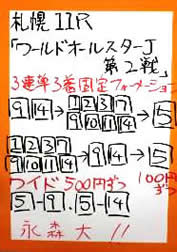 札幌11R
「ワールドオールスターJ
第2戦」
3連単3着固定フォーメーション
9 14 → 1 2 3 7 9 10 11 14 → 5
1 2 3 7 9 10 11 14 → 9 14 → 5
100円ずつ
ワイド500円ずつ
5-9、5-14
永森大!!